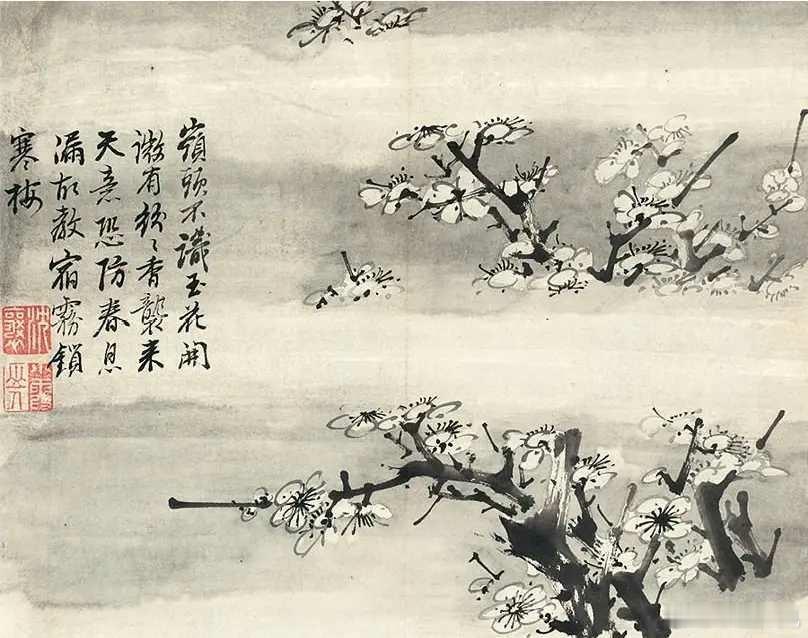 嶺頭不識玉花開
微有移〻香襲来
天意恐防春息
漏故教宿霧鎖
寒梅